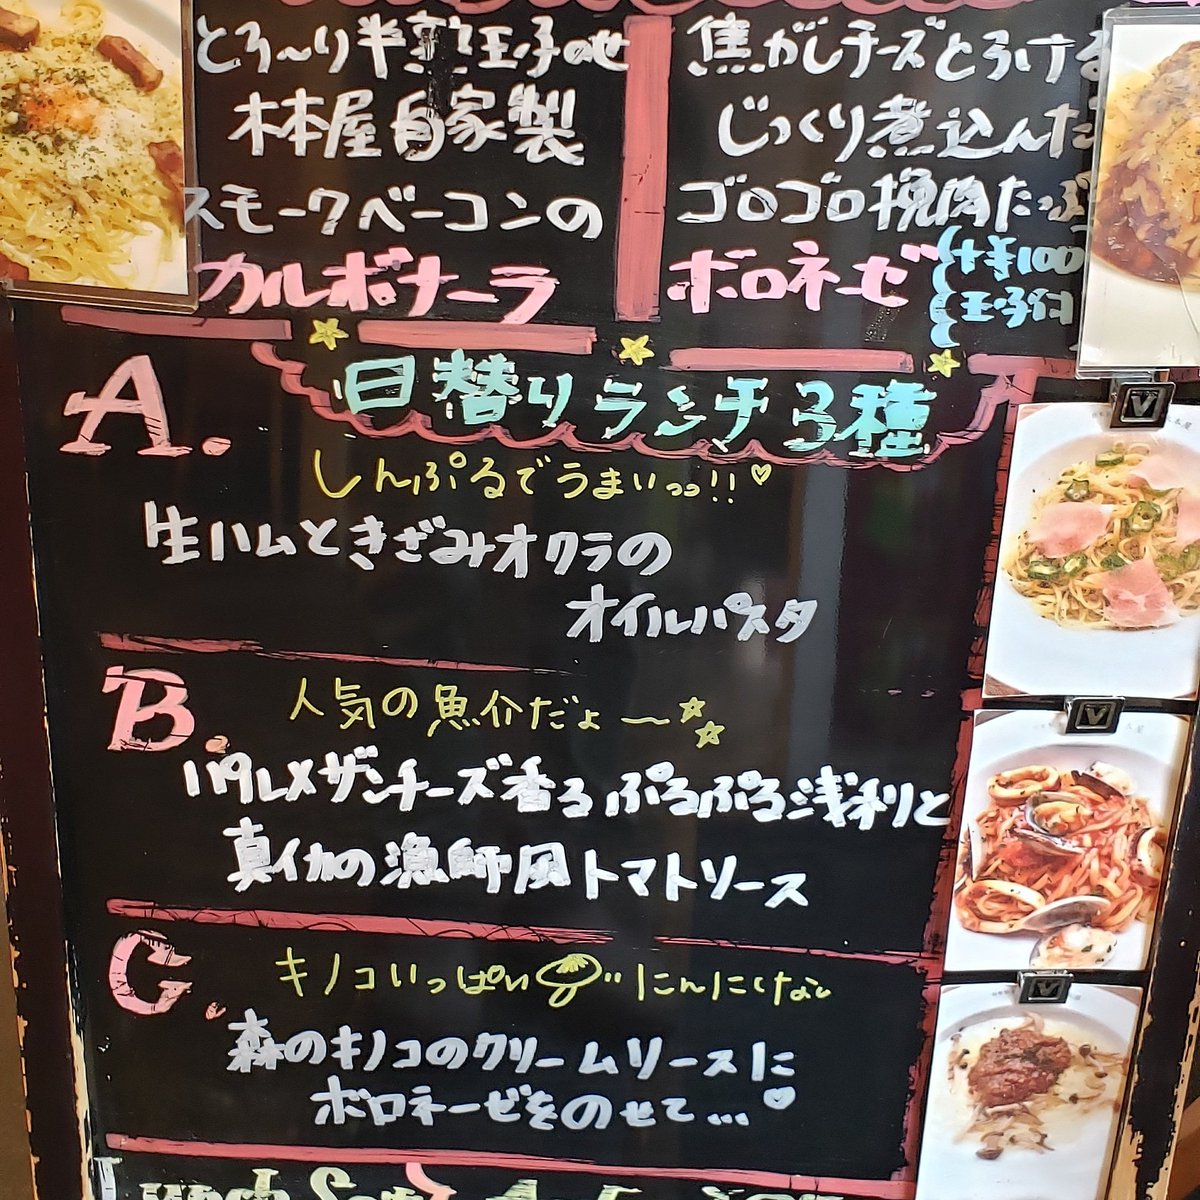 とろ〜り半熟玉子のせ
木本屋自家製
スモークベーコンの
カルボナーラ
焦がしチーズとろける
じっくり煮込んだ
ゴロゴロ挽肉たっぷ
ボロネーゼ
+¥100
玉子付
日替りランチ3種
A.
しんぷるでうまいっっ!!♡
生ハムときざみオクラの
オイルパスタ
B.
人気の魚介だよ〜☆☆
パルメザンチーズ香るぷるぷる浅利と
真イカの漁師風トマトソース
C.
キノコいっぱい にんにくなし
森のキノコのクリームソースに
ボロネーゼをのせて…♡
Lunch